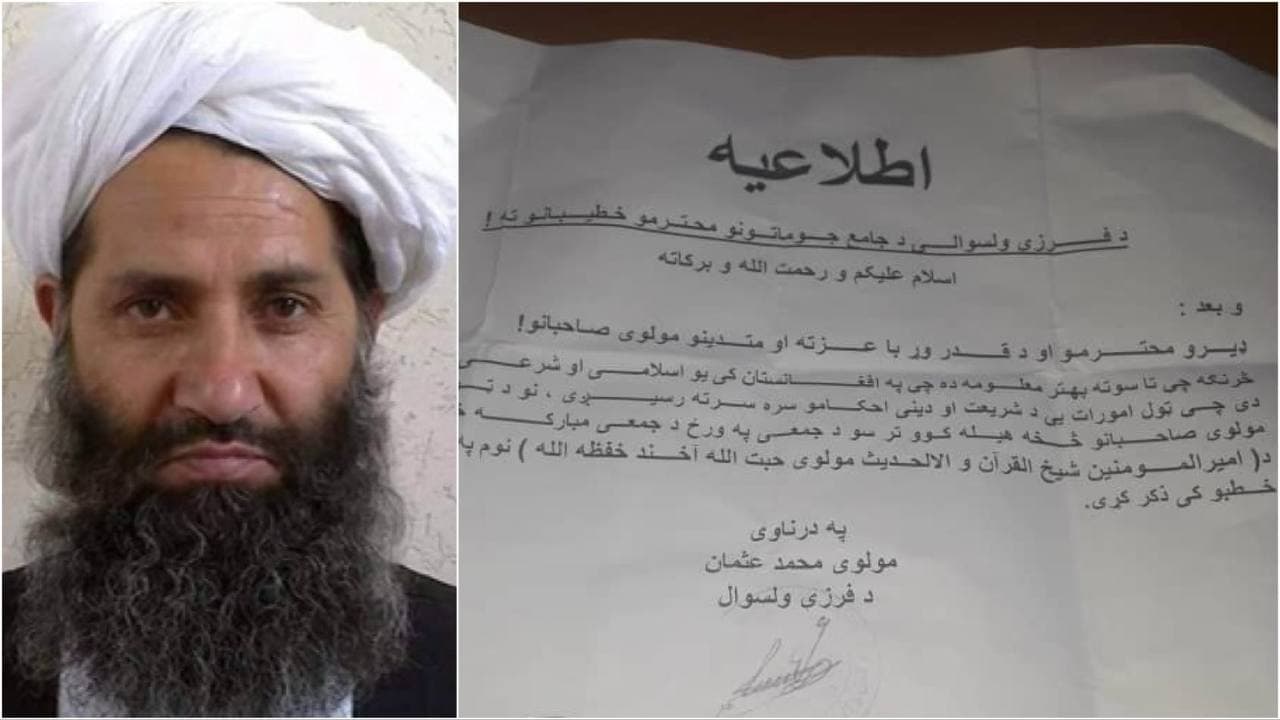 اطلاعیه
د فرزی ولسوالی د جامع جوماتونو محترمو خطیبانو ته !
اسلام علیکم و رحمت الله و برکاته
و بعد :
ډیرو محترمو او د قدر وړ با عزته او متدینو مولوی صاحبانو!
څرنګه چی تاسوته بهتر معلومه ده چی په افغانستان کی یو اسلامی او شرعی
دی چی ټول امورات یی د شریعت او دینی احکامو سره سرته رسیږی ، نو د
مولوی صاحبانو څخه هیله کوو تر سو د جمعی په ورځ د جمعی مبارکه
د( امیرالمومنین شیخ القرآن و الالحدیث مولوی حبت الله آخند خفظه الله ) نوم په
خطبو کی ذکر کړی.
په درناوی
مولوی محمد عثمان
د فرزی ولسوال